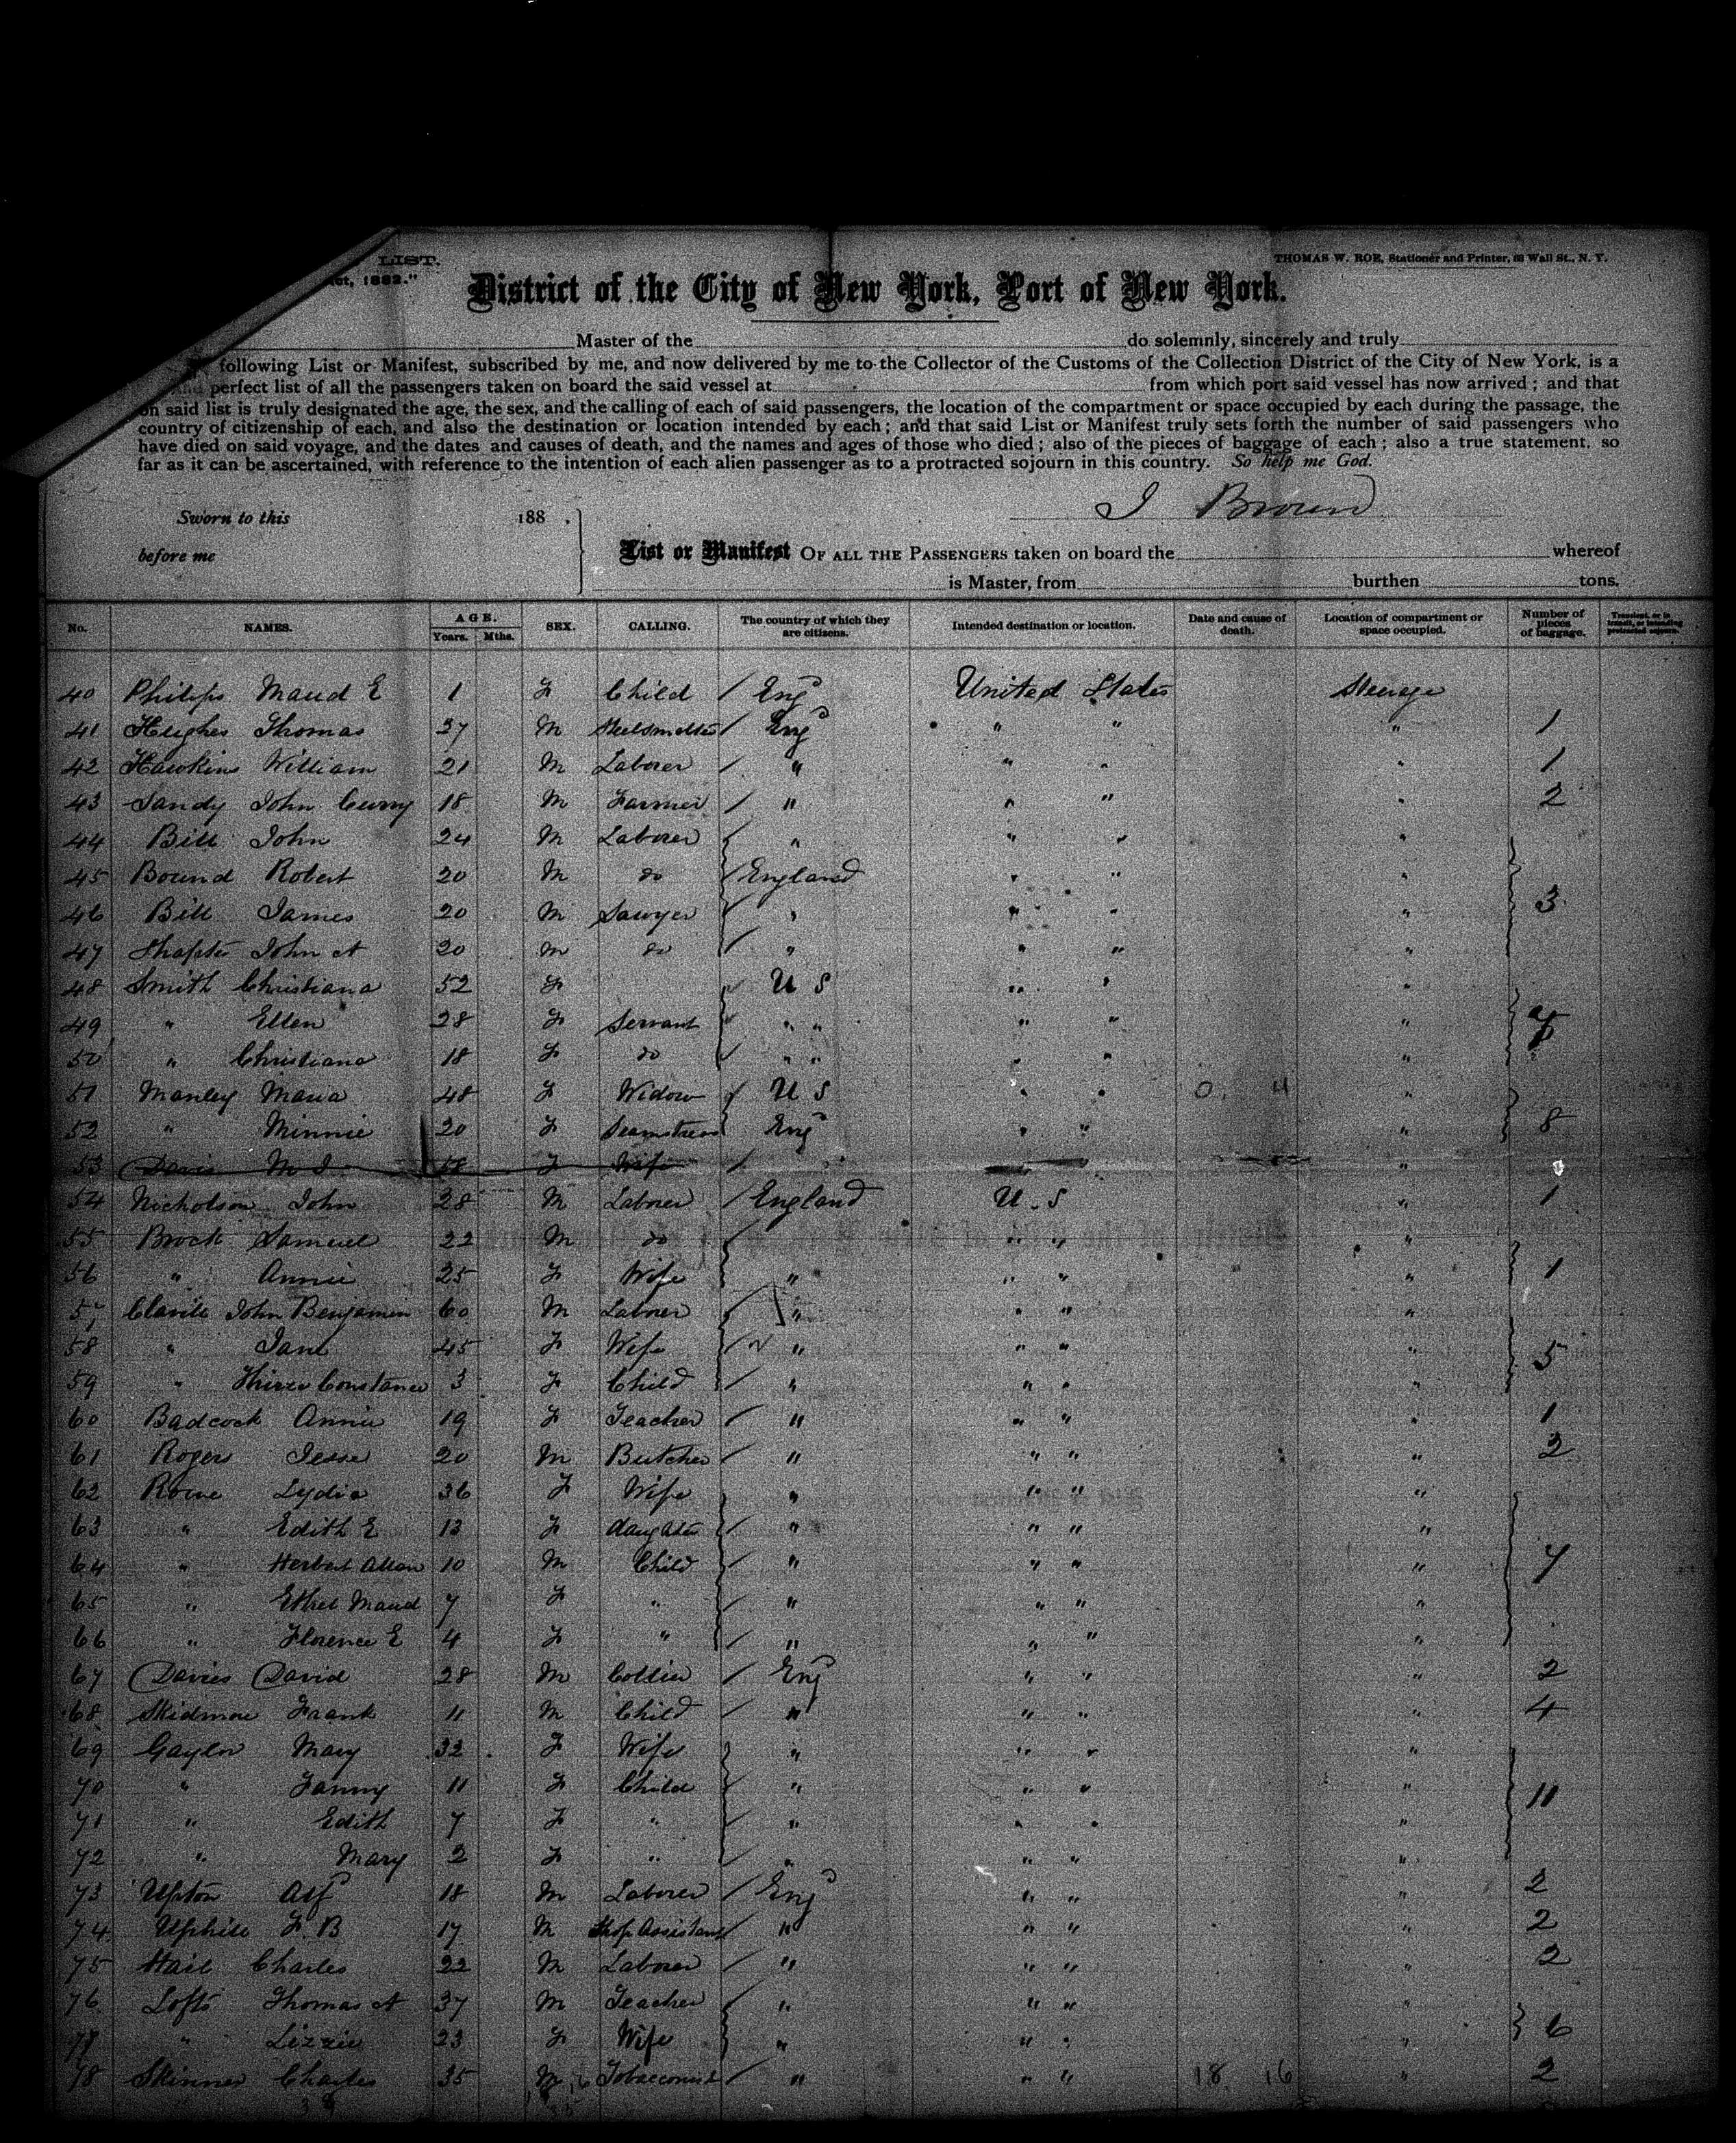 LIST.
Act, 1882."
THOMAS W. ROE, Stationer and Printer, Wall St., N. Y.
District of the City of New York, Port of New York.
Master of the do solemnly, sincerely and truly
following List or Manifest, subscribed by me, and now delivered by me to the Collector of the Customs of the Collection District of the City of New York, is a
and perfect list of all the passengers taken on board the said vessel at from which port said vessel has now arrived; and that
on said list is truly designated the age, the sex, and the calling of each of said passengers, the location of the compartment or space occupied by each during the passage, the
country of citizenship of each, and also the destination or location intended by each; and that said List or Manifest truly sets forth the number of said passengers who
have died on said voyage, and the dates and causes of death, and the names and ages of those who died; also of the pieces of baggage of each; also a true statement, so
far as it can be ascertained, with reference to the intention of each alien passenger as to a protracted sojourn in this country. So help me God.
J Brown
Sworn to this 188 .
before me
List or Manifest OF ALL THE PASSENGERS taken on board the whereof
is Master, from burthen tons.
No. NAMES. AGE. Years. Mths. SEX. CALLING. The country of which they are citizens. Intended destination or location. Date and cause of death. Location of compartment or space occupied. Number of pieces of baggage. Transient, or in transit, or intending protracted sojourn.
40 Philips Maud E 1 F Child / Engd United States Steerage
41 Hughes Thomas 37 M Steelsmelter / Engd " " " 1
42 Hawkins William 21 M Laborer / " " " " 1
43 Sandy John Curry 18 M Farmer / " " " " 2
44 Bill John 24 M Laborer " " " "
45 Bound Robert 20 M do England " " "
46 Bill James 20 M Sawyer " " " " 3
47 John A 20 M do " " " "
48 Smith Christiana 52 F U S " " "
49 " Ellen 28 F Servant " " " " "
50 " Christiana 18 F do " " " " "
51 Manley Maria 48 F Widow U S " " "
52 " Minnie 20 F Seamstress Engd " " " 8
53 Davis M J 58 F Wife / "
54 Nicholson John 28 M Laborer / England U.S " 1
55 Brock Samuel 22 M do " " "
56 " Annie 25 F Wife " " " " 1
57 John Benjamin 60 M Laborer " " " "
58 " Jane 45 F Wife " " " " 5
59 " Constance 3 F Child / " " " "
60 Badcock Annie 19 F Teacher / " " " " 1
61 Rogers Jesse 20 M Butcher / " " " " 2
62 Rowe Lydia 36 F Wife " " " "
63 " Edith E 13 F daughter " " " "
64 " Herbert Allan 10 M Child " " " " 7
65 " Ethel Maud 7 F " " " " "
66 " Florence E 4 F " " " " "
67 Davies David 28 M Collier / Engd " " " 2
68 Skidmore Frank 11 M Child / " " " " 4
69 Gaylor Mary 32 F Wife " " " "
70 " Fanny 11 F Child " " " " 11
71 " Edith 7 F " " " " "
72 " Mary 2 F " " " " "
73 Upton Alf 18 M Laborer / Engd " " " 2
74 Uphill F B 17 M Shop Assistant / " " " " 2
75 Hail Charles 22 M Laborer / " " " " 2
76 Lofts Thomas A 37 M Teacher " " " "
77 " Lizzie 23 F Wife " " " " 6
78 Skinner Charles 35 M Tobacconist / " " " 18 16 " 2